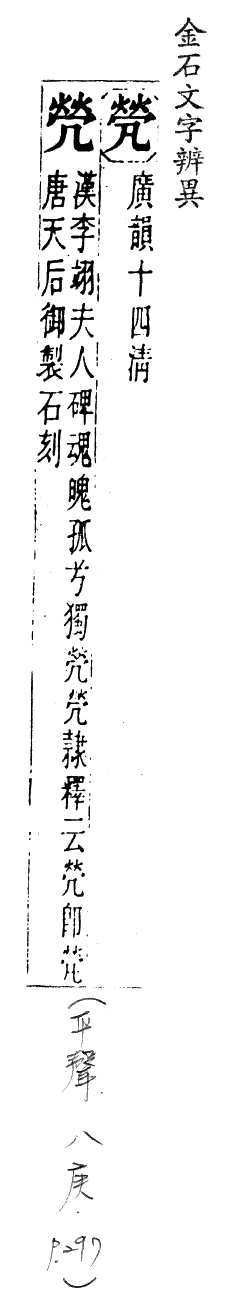 金石文字辨異
焭
廣韻十四清
焭
漢李翊夫人碑魂魄孤兮獨焭焭隸釋云焭即茕
唐天后御製石刻
(平聲 八庚. P.297)